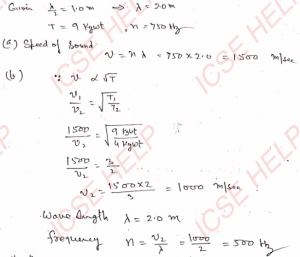 Given λ/2 = 1.0 m → λ = 2.0 m
T = 9 Kgwt, n = 750 Hz
(a) Speed of Sound
v = nλ = 750 × 2.0 = 1500 m/sec
(b) ∵ v ∝ √T
v₁/v₂ = √(T₁/T₂)
1500/v₂ = √(9 Kgwt/4 Kgwt)
1500/v₂ = 3/2
v₂ = 1500×2/3 = 1000 m/sec
Wave length λ = 2.0 m
frequency n = v₂/λ = 1000/2 = 500 Hz
ICSE HELP
ICSE HELP
ICSE HELP